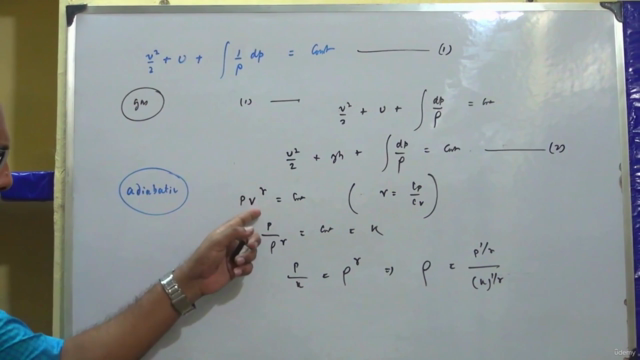 v²/2 + U + ∫ 1/ρ dp = Cont ——— (1)
gas (1) —— v²/2 + U + ∫ dp/ρ = Cnt
v²/2 + gh + ∫ dp/ρ = Cont ——— (2)
adiabatic PV^γ = Cnt ( γ = Cp/Cv )
P/ρ^γ = Cnt = K
P/K = ρ^γ ⇒ ρ = P^1/γ / (K)^1/γ
Udemy